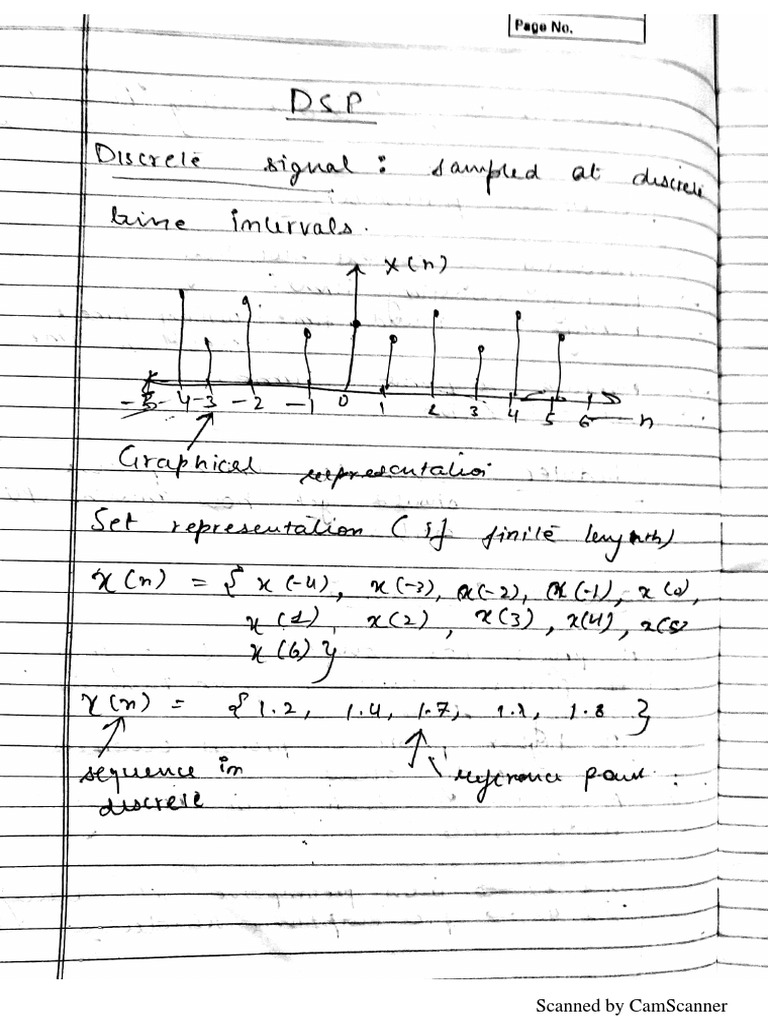 Page No.
DSP
Discrete signal : sampled at discrete
time intervals.
x(n)
-5 -4 -3 -2 -1 0 1 2 3 4 5 6 n
Graphical representation
Set representation (if finite length)
x(n) = { x(-4), x(-3), x(-2), x(-1), x(0),
x(1), x(2), x(3), x(4), x(5)
x(6) }
x(n) = { 1.2, 1.4, 1.7, 1.8 }
sequence in reference point :
discrete
Scanned by CamScanner